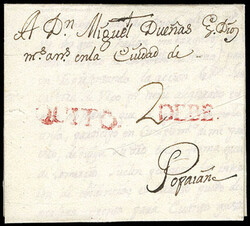 A Dn. Miguel Dueñas G. Dios
ms. ans. en la Ciudad de
QUITO. 2 DEBE.
Popaian